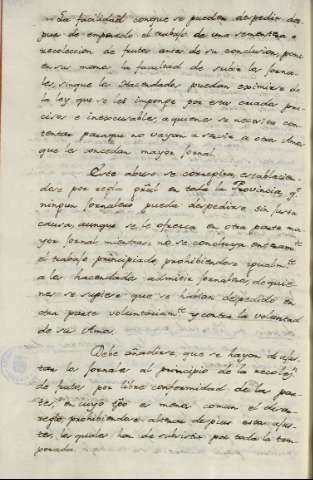 La facilidad con que se pueden despedir des
pues de empezado el trabajo de una sementera o
recoleccion de frutos antes de su conclusion, pone
en su mano la facultad de subir los jorna
les, sin que los Hacendados puedan eximirse de
la ley que se les impone por estos criados pre
cisos e inexcusables, a quienes se necesita con
tentar para que no vayan a servir a otro Amo
que les conceda mayor jornal.
Este abuso se corregiria, establecien
dose por regla gñal en toda la Provincia, qe
ningun jornalero pueda despedirse sin justa
causa, aunque se le ofrezca en otra parte ma
yor jornal mientras no se concluya enteramte
el trabajo principiado prohibiendose igualmte
a los hacendados admitir jornaleros, de quie
nes se supiere que se habian despedido en
otra parte voluntariamte y contra la voluntad
de su Amo.
Debe añadirse que se hayan de ajus
tar los jornales al principio de la recolecn
de frutos por libre conformidad de las par
tes, en cuyo tpo es menos comun el desa
rreglo prohibiendose alterar despues estos ajus
tes, los quales han de subsistir por toda la tem
porada.